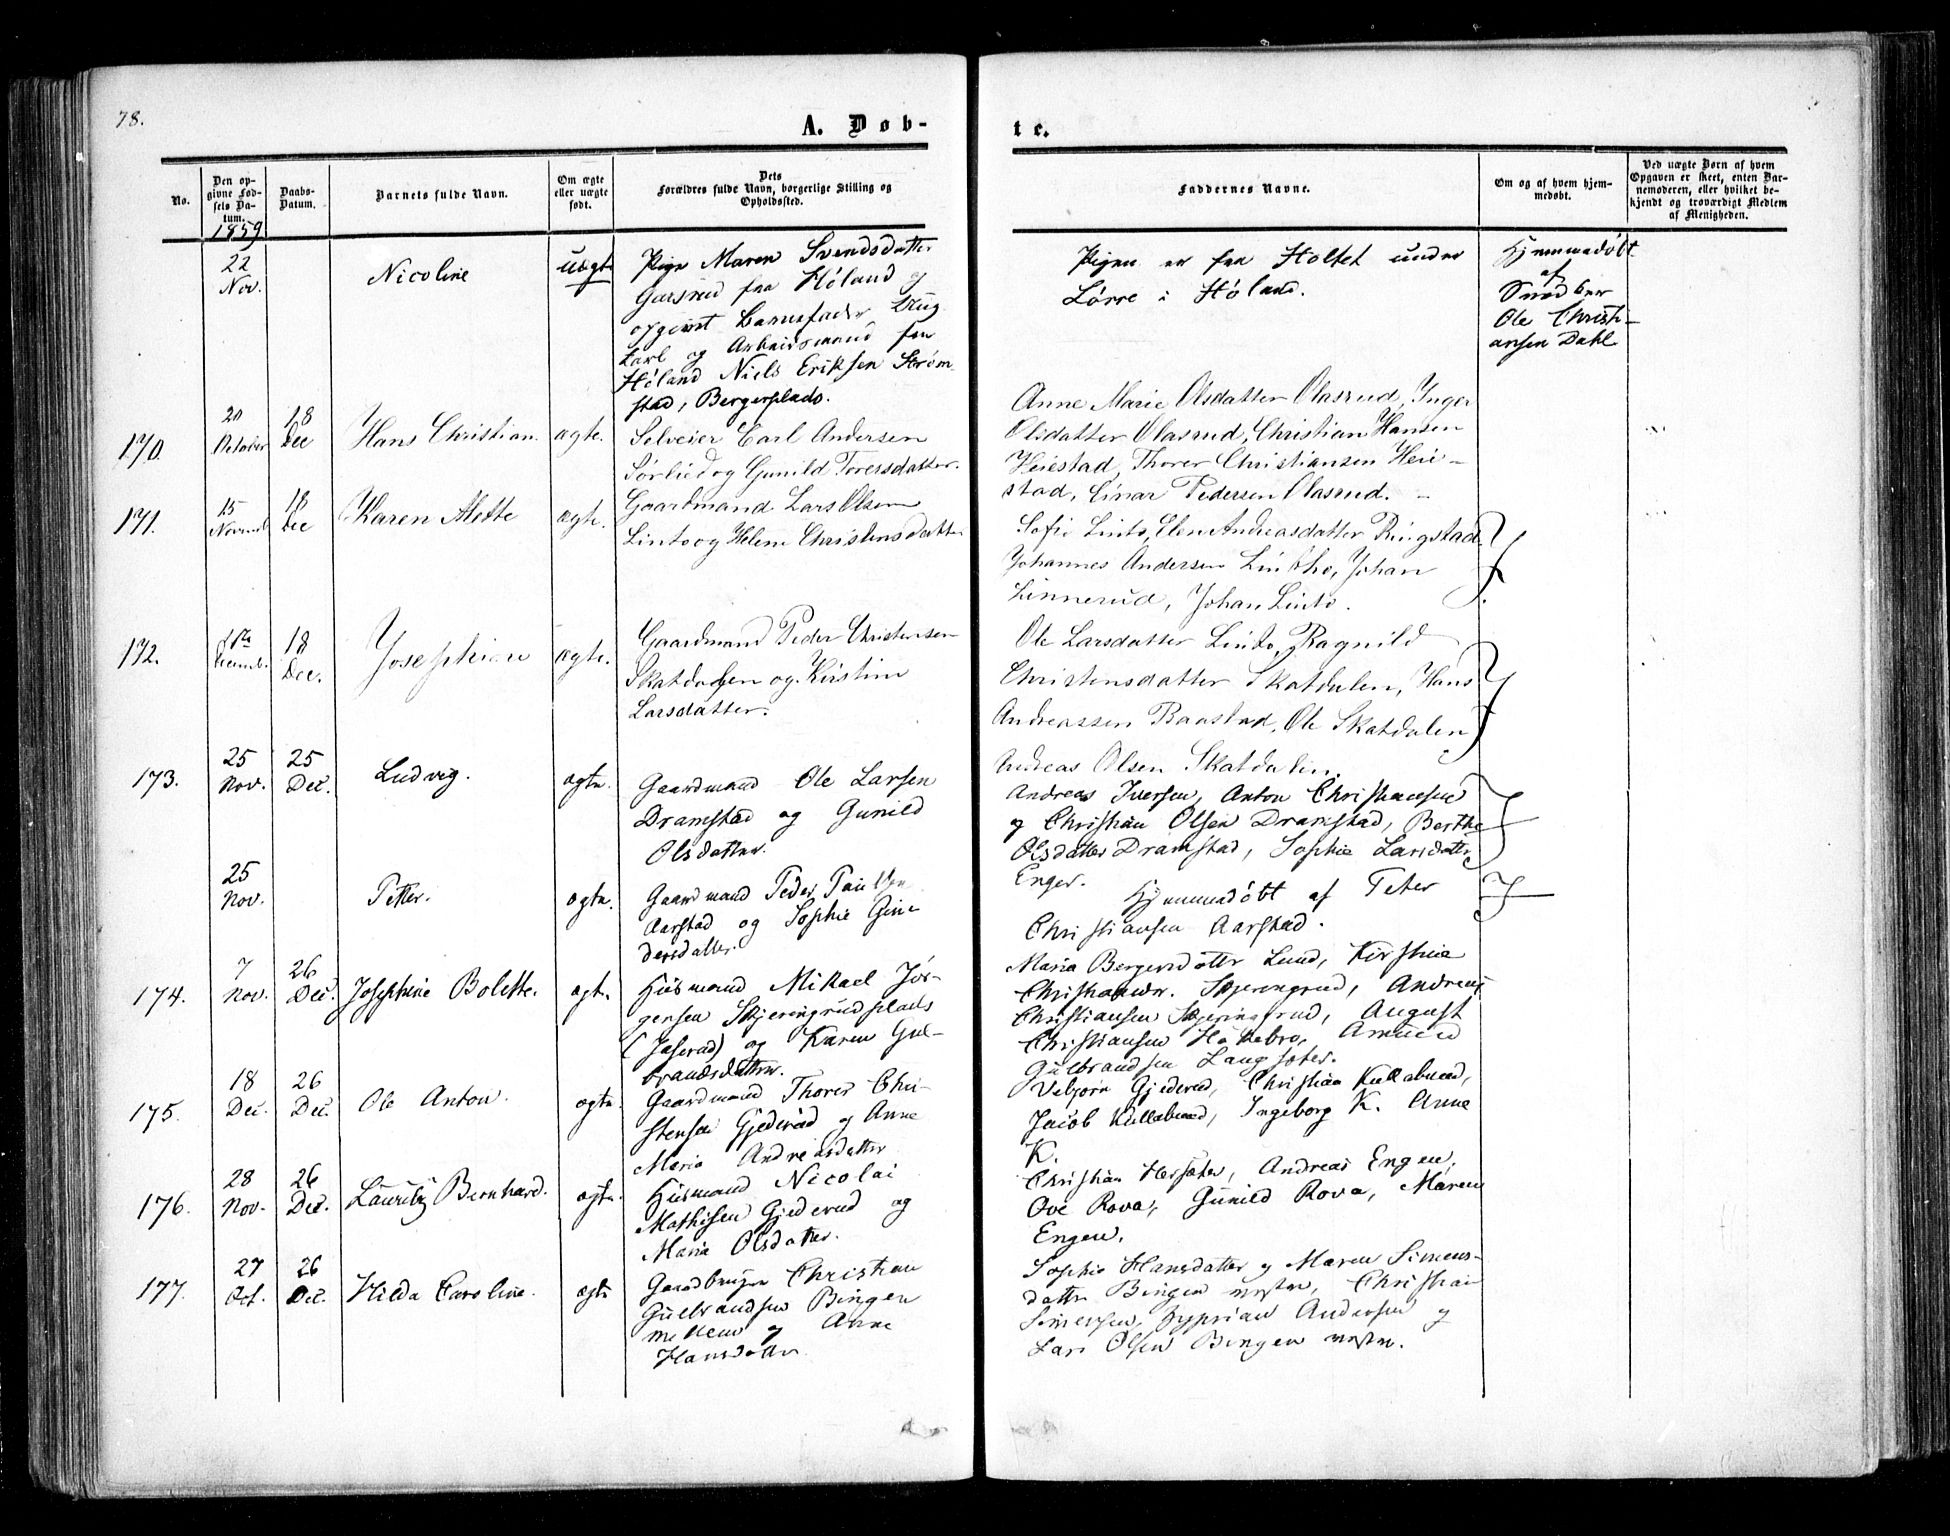 78.
A. Døb-
te.
No.
Den op-
givne Fød-
sels Da-
tum.
Daabs-
Datum.
Barnets fulde Navn.
Om ægte
eller uægte
født.
Dets
Forældres fulde Navn, borgerlige Stilling og
Opholdssted.
Faddernes Navne.
Om og af hvem hjem-
medøbt.
Ved uægte Børn af hvem
Opgaven er skeet, enten Bar-
nemoderen, eller hvilket be-
kjendt og troværdigt Medlem
af Menigheden.
1859
22
Nov.
Nicoline
uægte
Pige Maren Svendsdatter
fra Høland og
opgivet Barnefader Ung
karl og Arbeidsmand fra
Høland Niels Eriksen Strøm
stad, Bergerplads.
Pigen er fra Holtet under
Lörre i Höland.
Hjemmedøbt
af
Ole Christi-
ansen Dahl
170.
20
October
18
Dec
Hans Christian.
ægte.
Selveier Carl Andersen
Sørlie og Gunild Toresdatter.
Anne Marie Olsdatter Olasrud, Inger
Olsdatter Olasrud, Christian Hansen
Heiestad, Thorer Christiansen Heie-
stad, Einar Pedersen Olasrud.
171.
15
Novemb
18
Dec
Karen Mette
ægte.
Gaardmand Lars Olsen
Linto og Helene Christensdatter
Sofie Linto, Elen Andreasdatter Ringstad
Johannes Andersen Lintho, Johan
Linnerud, Johan Linto.
172.
18
Dec.
Josephine
ægte.
Gaardmand Peder Christensen
Skatdalen og Kirstine
Larsdatter.
Ole Larsdatter Linto, Ragnild
Christensdatter Skatdalen, Hans
Andreassen Raastad, Ole Skatdalen
Andreas Olsen Skatdalen.
173.
25
Nov.
25
Dec.
Ludvig.
ægte.
Gaardmand Ole Larsen
Dramstad og Gunild
Olsdatter.
Andreas Iversen, Anton Christiansen
og Christian Olsen Dramstad, Berthe
Olsdatter Dramstad, Sophie Larsdatter
Enger.
25
Nov.
Petter.
ægte.
Gaardmand Peder Paulsen
Aarstad og Sophie Gun
dersdatter.
Hjemmedöbt af Peter
Christiansen Aarstad.
174.
7
Nov.
26
Dec.
Josephine Bolette.
ægte.
Husmand Mikael Jør-
gensen Skjeringrudplads
(Jaserud) og Karen Gul-
brandsdatter.
Maria Bergersdatter Lund, Kirstine
Christiansdr. Skjeringrud, Andreas
Christiansen Skjeringrud, August
Christiansen Hakebro, Amund
Gulbrandsen Langsæter.
175.
18
Dec.
26
Dec.
Ole Anton.
ægte.
Gaardmand Thorer Chri-
stensen Gjederud og Anne
Maria Andreasdatter
Vebjørn Gjederud, Christian Kullebund,
Jacob Kullebund, Ingeborg K. Anna
K.
176.
28
Nov.
26
Dec.
Lauritz Bernhard.
ægte.
Husmand Nicolai
Mathisen Gjederud og
Maria Olsdatter.
Christian Hersæter, Andreas Engen,
Ove Rova, Gunild Rova, Maren
Engen.
177.
27
Oct.
26
Dec.
Hilda Caroline.
ægte
Gaardbruger Christian
Gulbrandsen Bingen
mellem og Anne
Hansdatter
Sophie Hansdatter og Maren Simens-
datter Bingen nestre, Christian
Simensen, Zyprian Andersen og
Lars Olsen Bingen nestre.